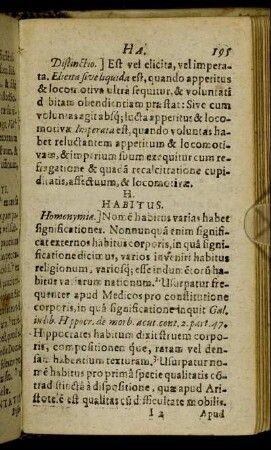 HA. 195
Distinctio.] Est vel elicita, vel impera-
ta. Elicita sive liquida est, quando apperitus
& locomotiva ultrà sequitur, & voluntati
debitam obendientiam præstat: Sive cum
voluntas agit absq; lucta appetitus & locomo-
tivæ Imperata est, quando voluntas ha-
bet reluctantem appetitum & locomoti-
vam, & imperium suum exequitur cum re-
fragatione & quadã recalcitratione cupi-
ditatis, affectuum, & locomotivæ.
H.
HABITUS.
Homonymia.] Nomẽ habitus varias habet
significationes. Nonnunquã enim signifi-
cat externos habitus corporis, in quâ signi-
ficatione dicimus, varios inveniri habitus
religionum, variosq; esse indumẽtorũ habi-
tus variarum nationum. Usurpatur fre-
quenter apud Medicos pro constitutione
corporis, in quâ significatione inquit Gal.
in lib. Hippocr. de morb. acut. cont. 2. part. 47.
Hippocrates habitum dixit struem corpo-
ris, compositionẽ que, raram vel den-
sam habentium texturam. Usurpatur no-
mẽ habitus pro primâ specie qualitatis cõ-
tradistinctâ à dispositione, quæ apud Ari-
stotelẽ est qualitas cũ difficultate mobilis.
I 2 Apud